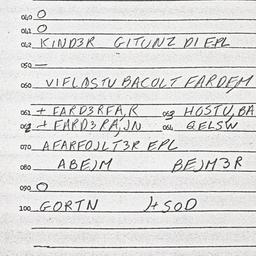 040 O
041 O
042 KIND3R GITUNZ DI EPL
050 —
060 VIFLASTU BACOLT FARDEJM
061 + FARD3RFA,R 063 HOSTU,BA
062 + FARD3RA,JN 064 QELSW
070 AFARFOJLT3R EPL
080 ABEJM BEJM3R
090 O
100 GORTN J+SOD